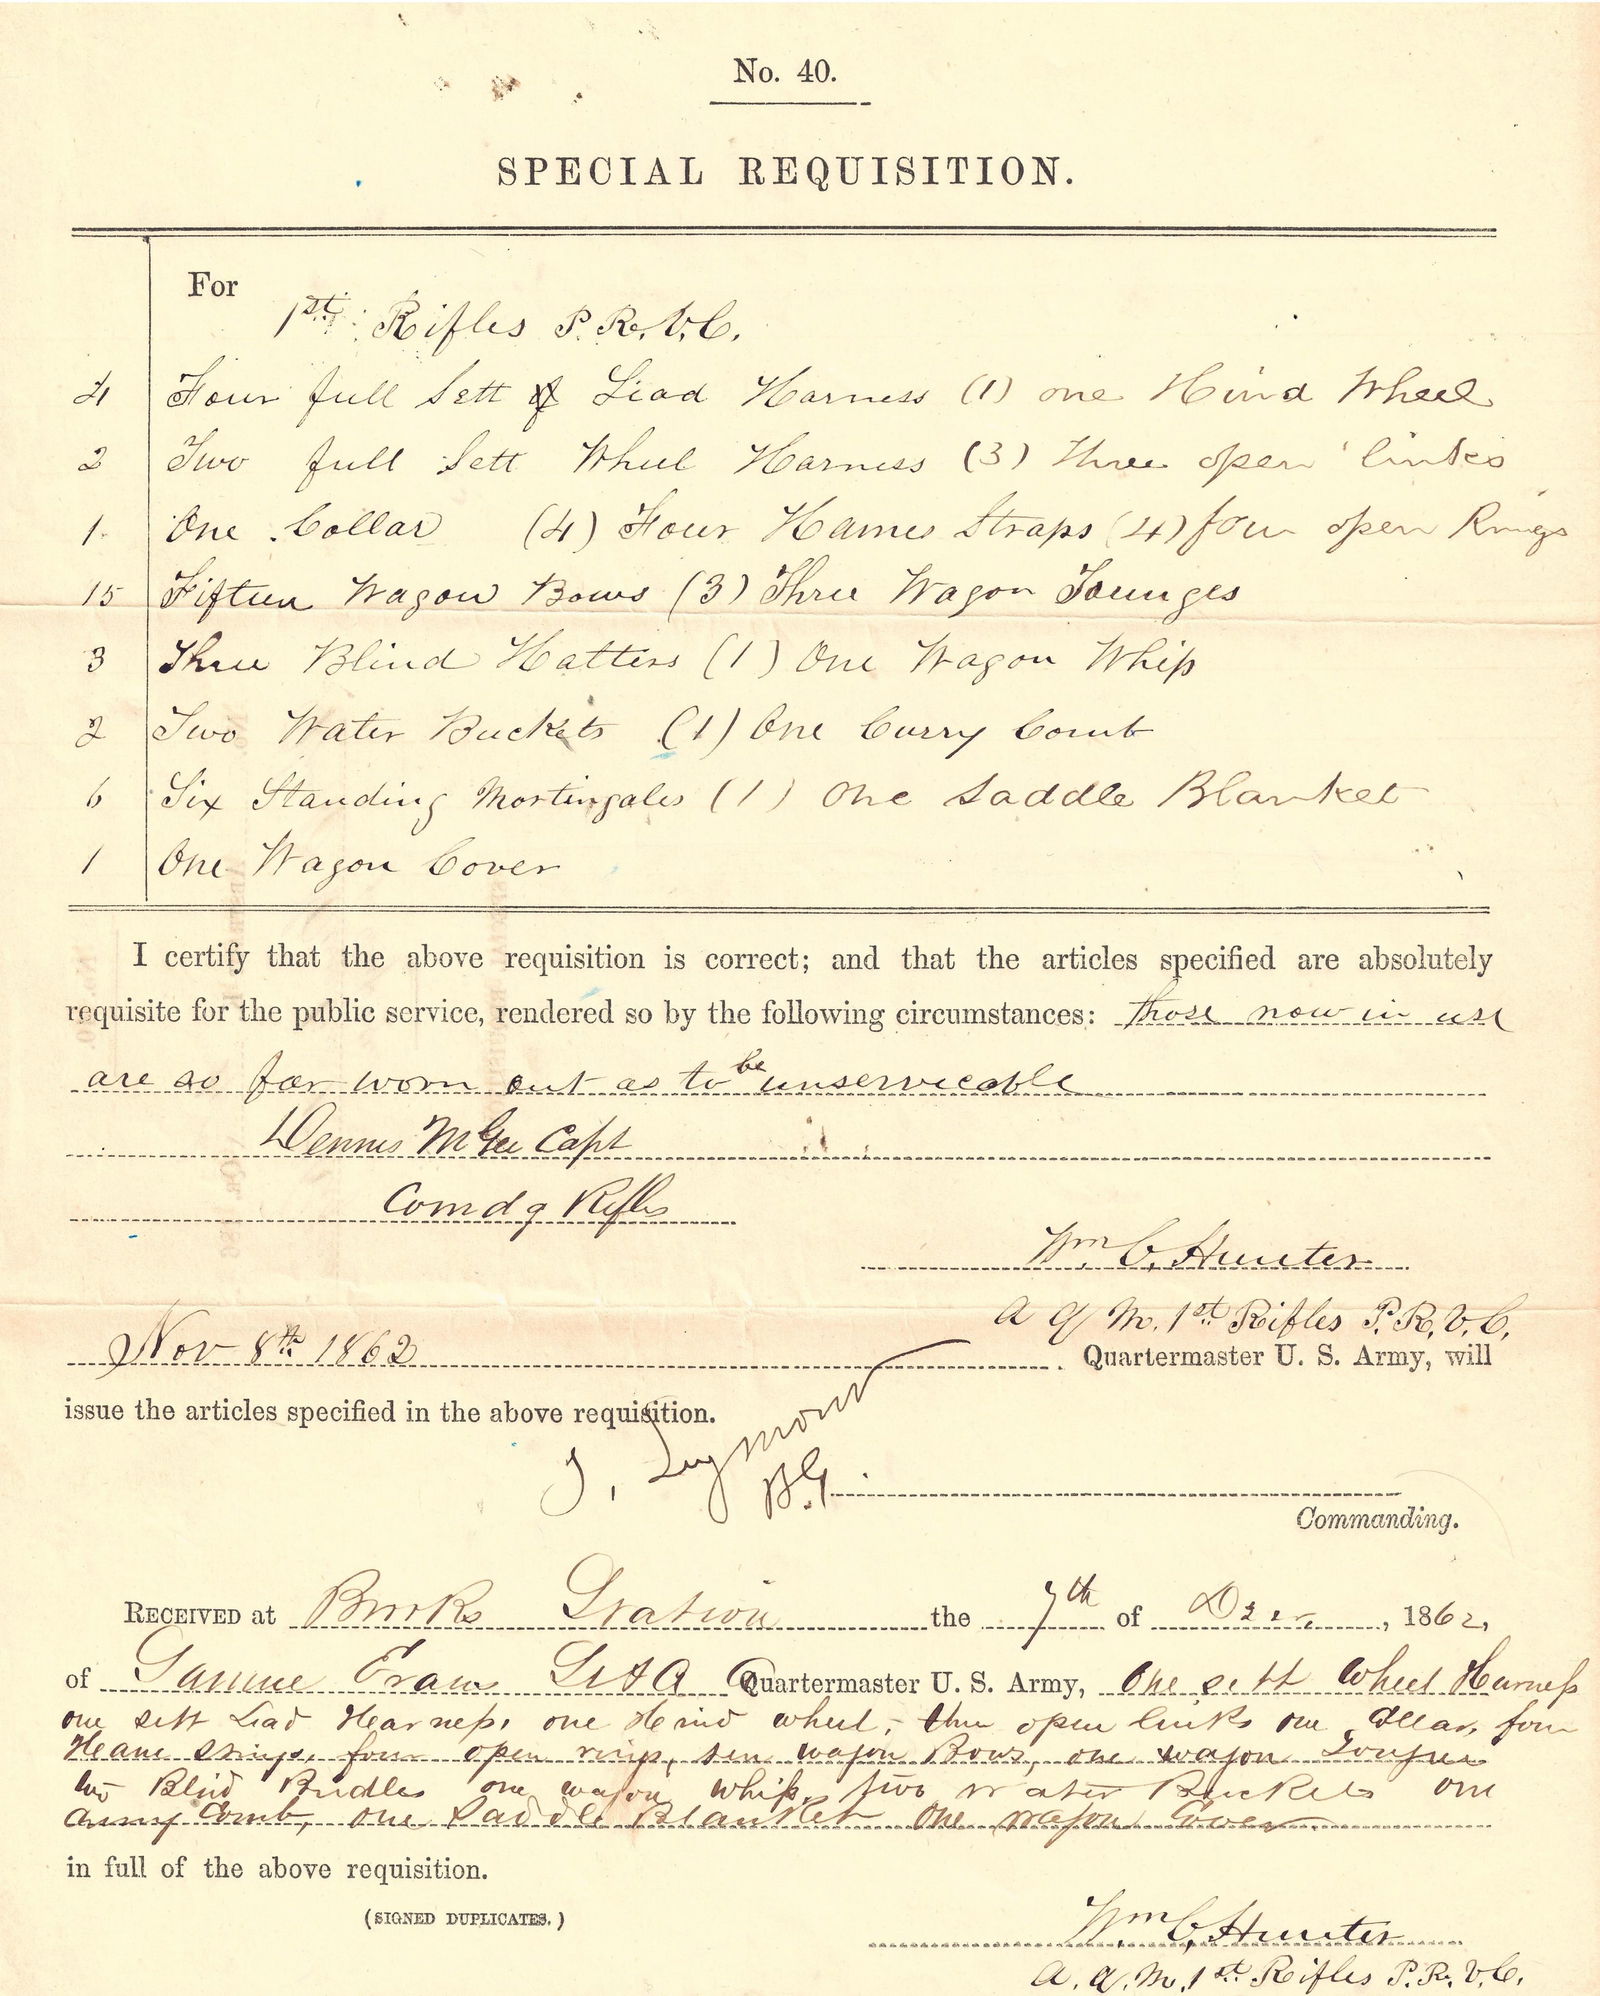 No. 40.
SPECIAL REQUISITION.
For
1st. Rifles P. R. V. C.
4 Four full Sett of Liad Harness (1) one Hind Wheel
2 Two full Sett Wheel Harness (3) three open links
1. One Collar (4) Four Hames Straps (4) four open Rings
15 Fifteen Wagon Bows (3) Three Wagon Tounges
3 Three Blind Halters (1) One Wagon Whip
2 Two Water Buckets (1) One Curry Comb
6 Six Standing Martingales (1) One Saddle Blanket
1 One Wagon Cover
I certify that the above requisition is correct; and that the articles specified are absolutely
requisite for the public service, rendered so by the following circumstances: those now in use
are so far worn out as to be unservicable
Dennis McGee Capt
Comdg Rifles
Wm. C. Hunter
A Q M. 1st. Rifles P. R. V. C.
Nov 8th. 1862 Quartermaster U. S. Army, will
issue the articles specified in the above requisition.
Seymour
B.G.
Commanding.
RECEIVED at Brooks Station the 7th of Decr, 1862,
of Quartermaster U. S. Army, One sett Wheel Harness
one sett Liad Harness, one Hind wheel, three open links one Collar, four
Hame Strings, four open rings, ten wagon Bows, one wagon Tongue
two Blind Bridles one wagon whip, two Water Buckets one
curry Comb, one Saddle Blanket One wagon Cover
in full of the above requisition.
(SIGNED DUPLICATES.)
Wm. C. Hunter
A. Q. M. 1st. Rifles P. R. V. C.